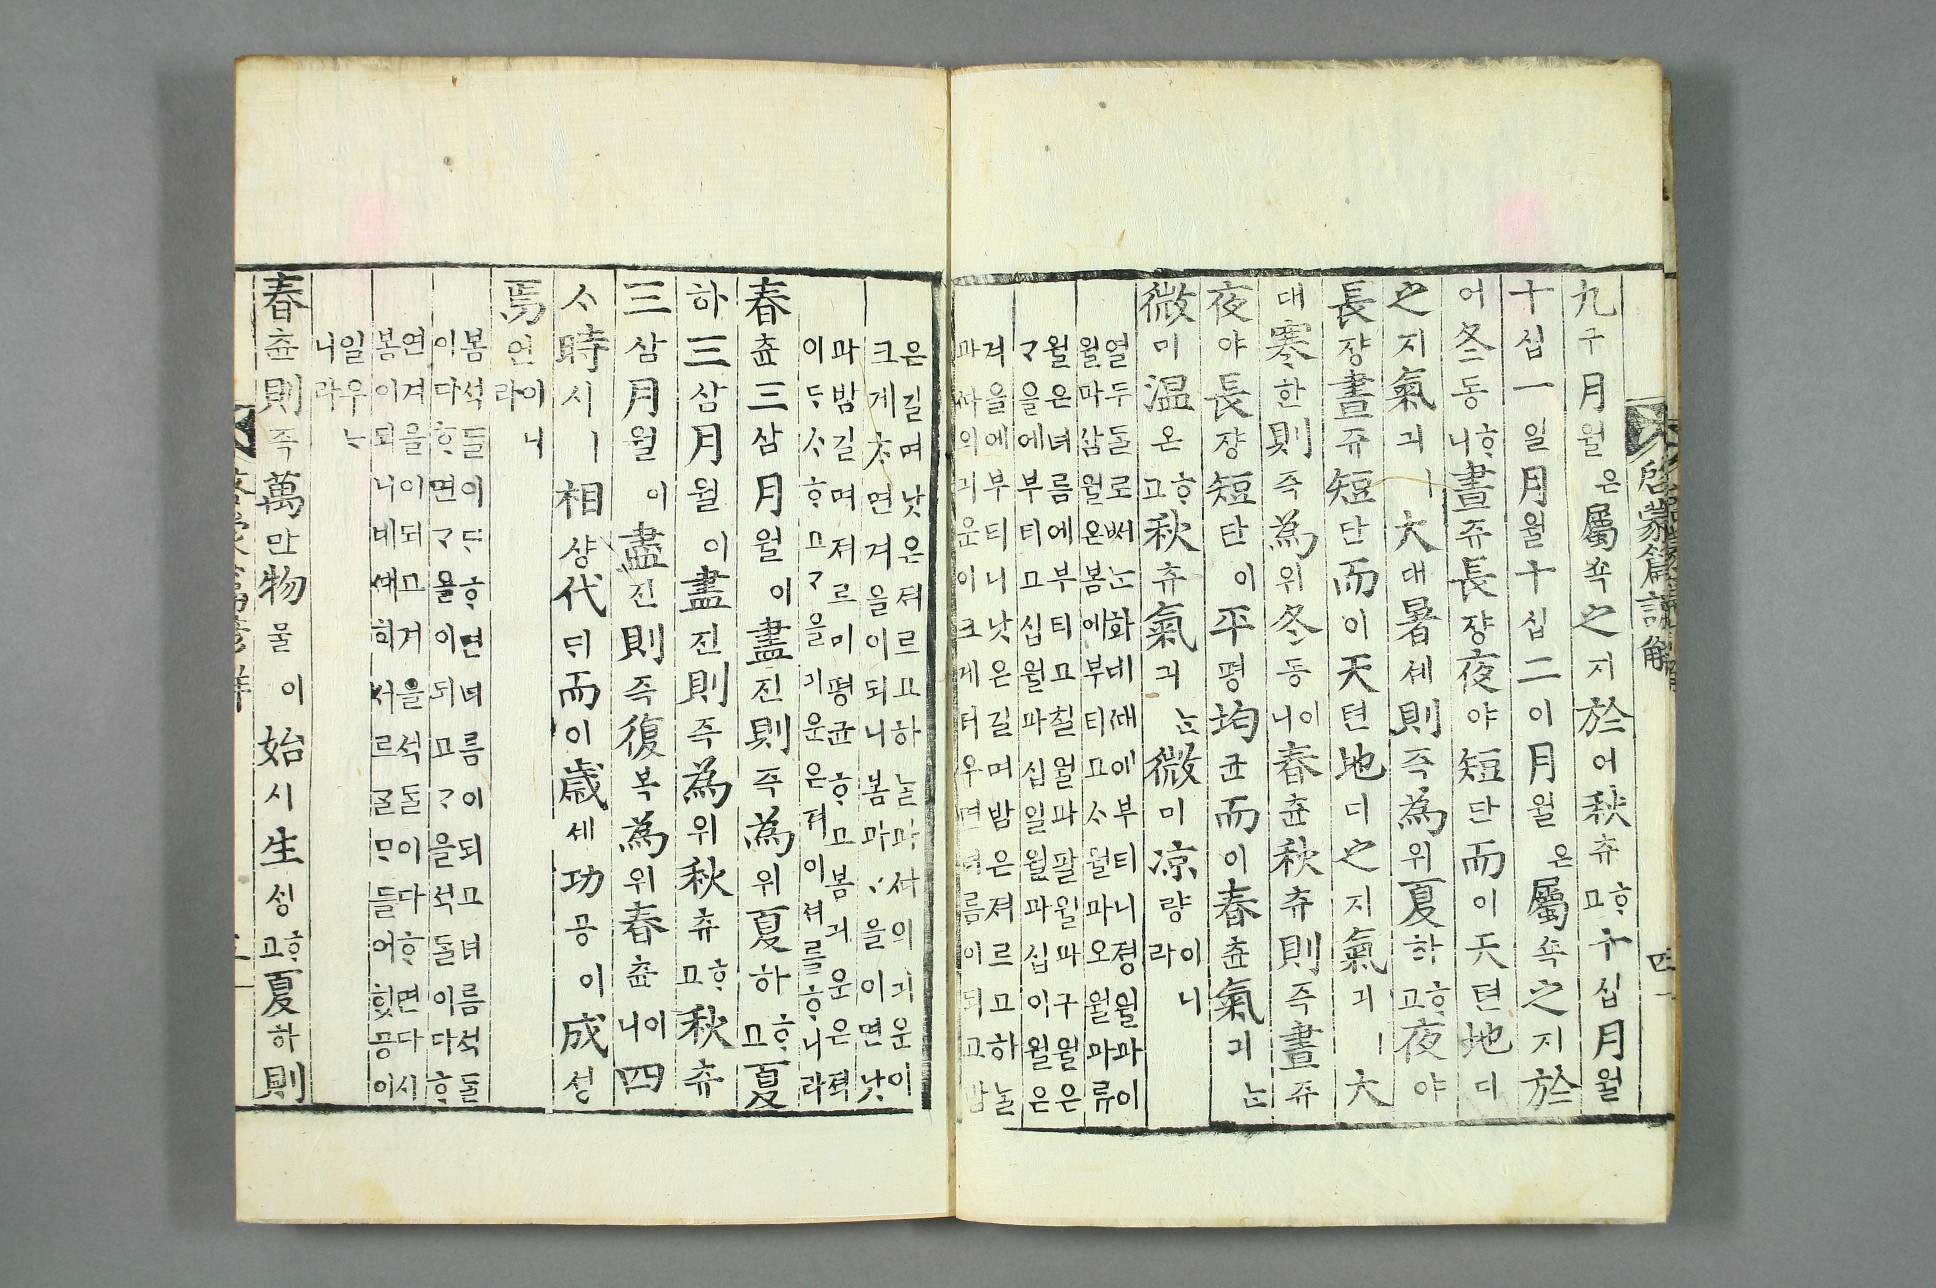 啓蒙篇諺解 四
九구月월은屬쇽之지於어秋츄ᄒᆞ고十십月월
十십一일月월十십二이月월은屬쇽之지於
어冬동ᄒᆞ니晝쥬長쟝夜야短단而이天텬地디
之지氣긔ㅣ大대暑셰則즉為위夏하ᄒᆞ고夜야
長쟝晝쥬短단而이天텬地디之지氣긔ㅣ大
대寒한則즉為위冬동이니春츈秋츄則즉晝쥬
夜야長쟝短단이平평均균而이春츈氣긔ᄂᆞᆫ
微미温온ᄒᆞ고秋츄氣긔ᄂᆞᆫ微미凉량이니라
열두ᄃᆞᆯ로ᄡᅥᄂᆞᆫ화네ᄣᅢ에부티니졍월과이
월과삼월은봄에부티고ᄉᆞ월과오월과류
월은녀름에부티고칠월과팔월과구월은
ᄀᆞ을에부티고십월과십일월과십이월은
겨을에부티니낫은길며밤은져르고하ᄂᆞᆯ
과ᄯᅡ의긔운이크게더우면녀름이되고밤
은길며낫은져르고하ᄂᆞᆯ과ᄯᅡ의긔운이
크게ᄎᆞ면겨을이되니봄과ᄀᆞ을이면낫
과밤길며져르미평균ᄒᆞ고봄긔운은젹
이ᄃᆞᄉᆞᄒᆞ고ᄀᆞ을긔운은젹이셔를ᄒᆞ니라
春츈三삼月월이盡진則즉為위夏하ᄒᆞ고夏
하三삼月월이盡진則즉為위秋츄ᄒᆞ고秋츄
三삼月월이盡진則즉復복為위春츈이니四
ᄉᆞ時시ㅣ相샹代ᄃᆡ而이歲셰功공이成셩
焉언이니라
봄석ᄃᆞᆯ이ᄃᆞᄒᆞ면녀름이되고녀름석ᄃᆞᆯ
이다ᄒᆞ면ᄀᆞ을이되고ᄀᆞ을석ᄃᆞᆯ이다ᄒᆞ
연겨을이되고겨을석ᄃᆞᆯ이다ᄒᆞ면다시
봄이되니네ᄣᅢ희서르ᄀᆞᆯᄆᆞ들어ᄒᆡᆺ공이
일우ᄂᆞ니라
春츈則즉萬만物물이始시生ᄉᆡᆼᄒᆞ고夏하則